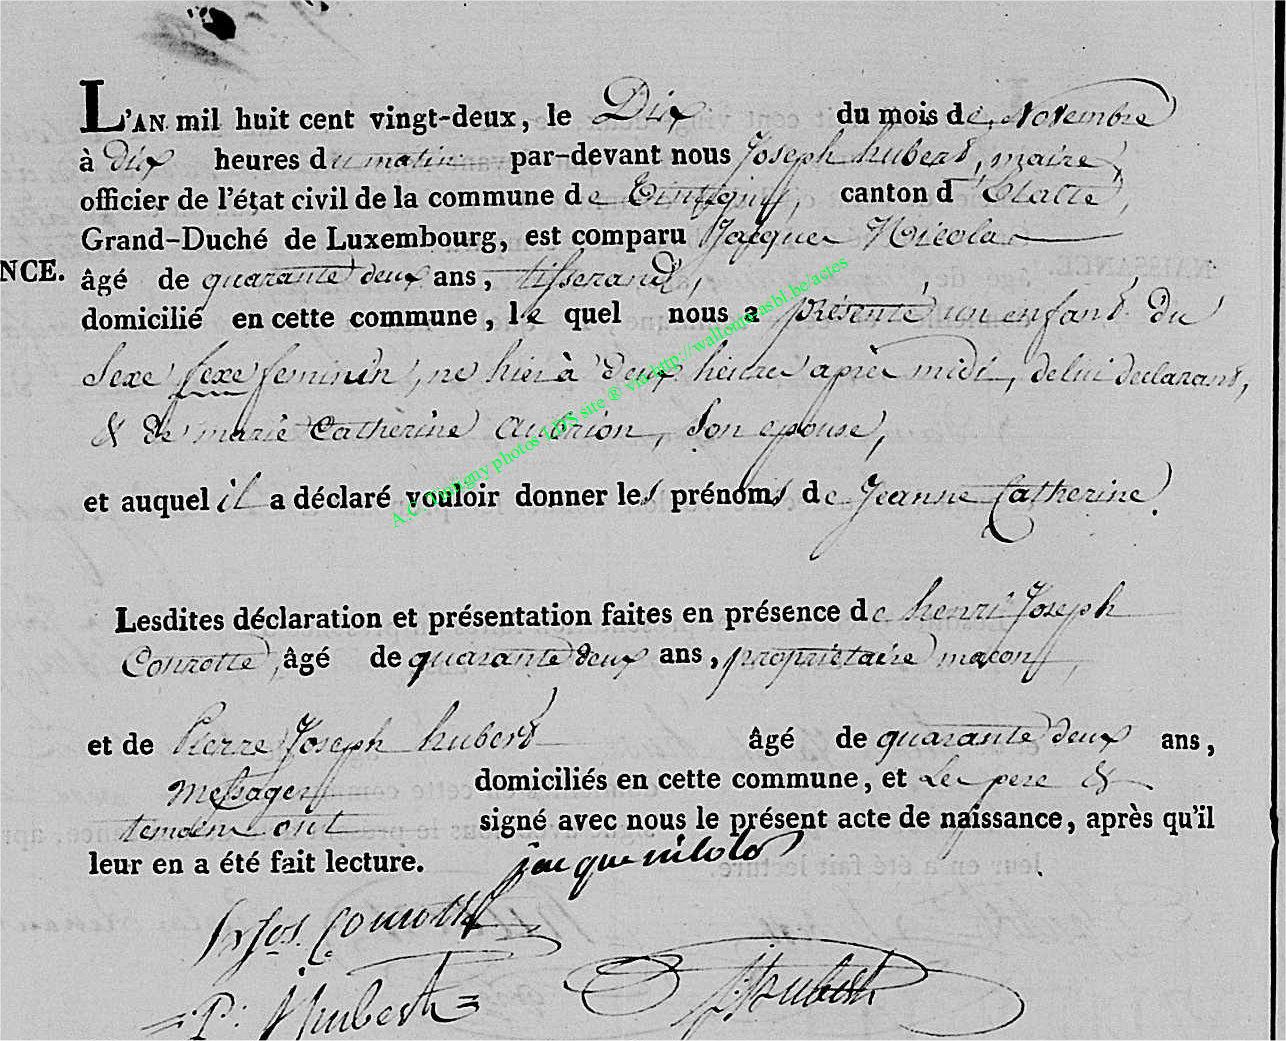 L'AN mil huit cent vingt-deux, le Dix du mois de Novembre
à dix heures du matin par-devant nous Joseph hubert, maire,
officier de l'état civil de la commune de Tintigny, canton d'Etalle,
Grand-Duché de Luxembourg, est comparu Jacques Nicolas
NCE. âgé de quarante deux ans, tisserand,
domicilié en cette commune, le quel nous a présenté un enfant du
Sexe sexe feminin, né hier à deux heures après midi, de lui declarant,
& de marie Catherine Aubrion, son epouse,
et auquel il a déclaré vouloir donner les prénoms de Jeanne Catherine.
Lesdites déclaration et présentation faites en présence de henri Joseph
Conrotte, âgé de quarante deux ans, propriétaire maçon,
et de Pierre Joseph hubert âgé de quarante deux ans,
messager domiciliés en cette commune, et Le pere &
temoins ont signé avec nous le présent acte de naissance, après qu'il
leur en a été fait lecture. jacque nicolas
hr Jos. Conrotte
P: Hubert J: Hubert
A.C. Tintigny photos LDS site ® via http://wallonia-asbl.be/actes